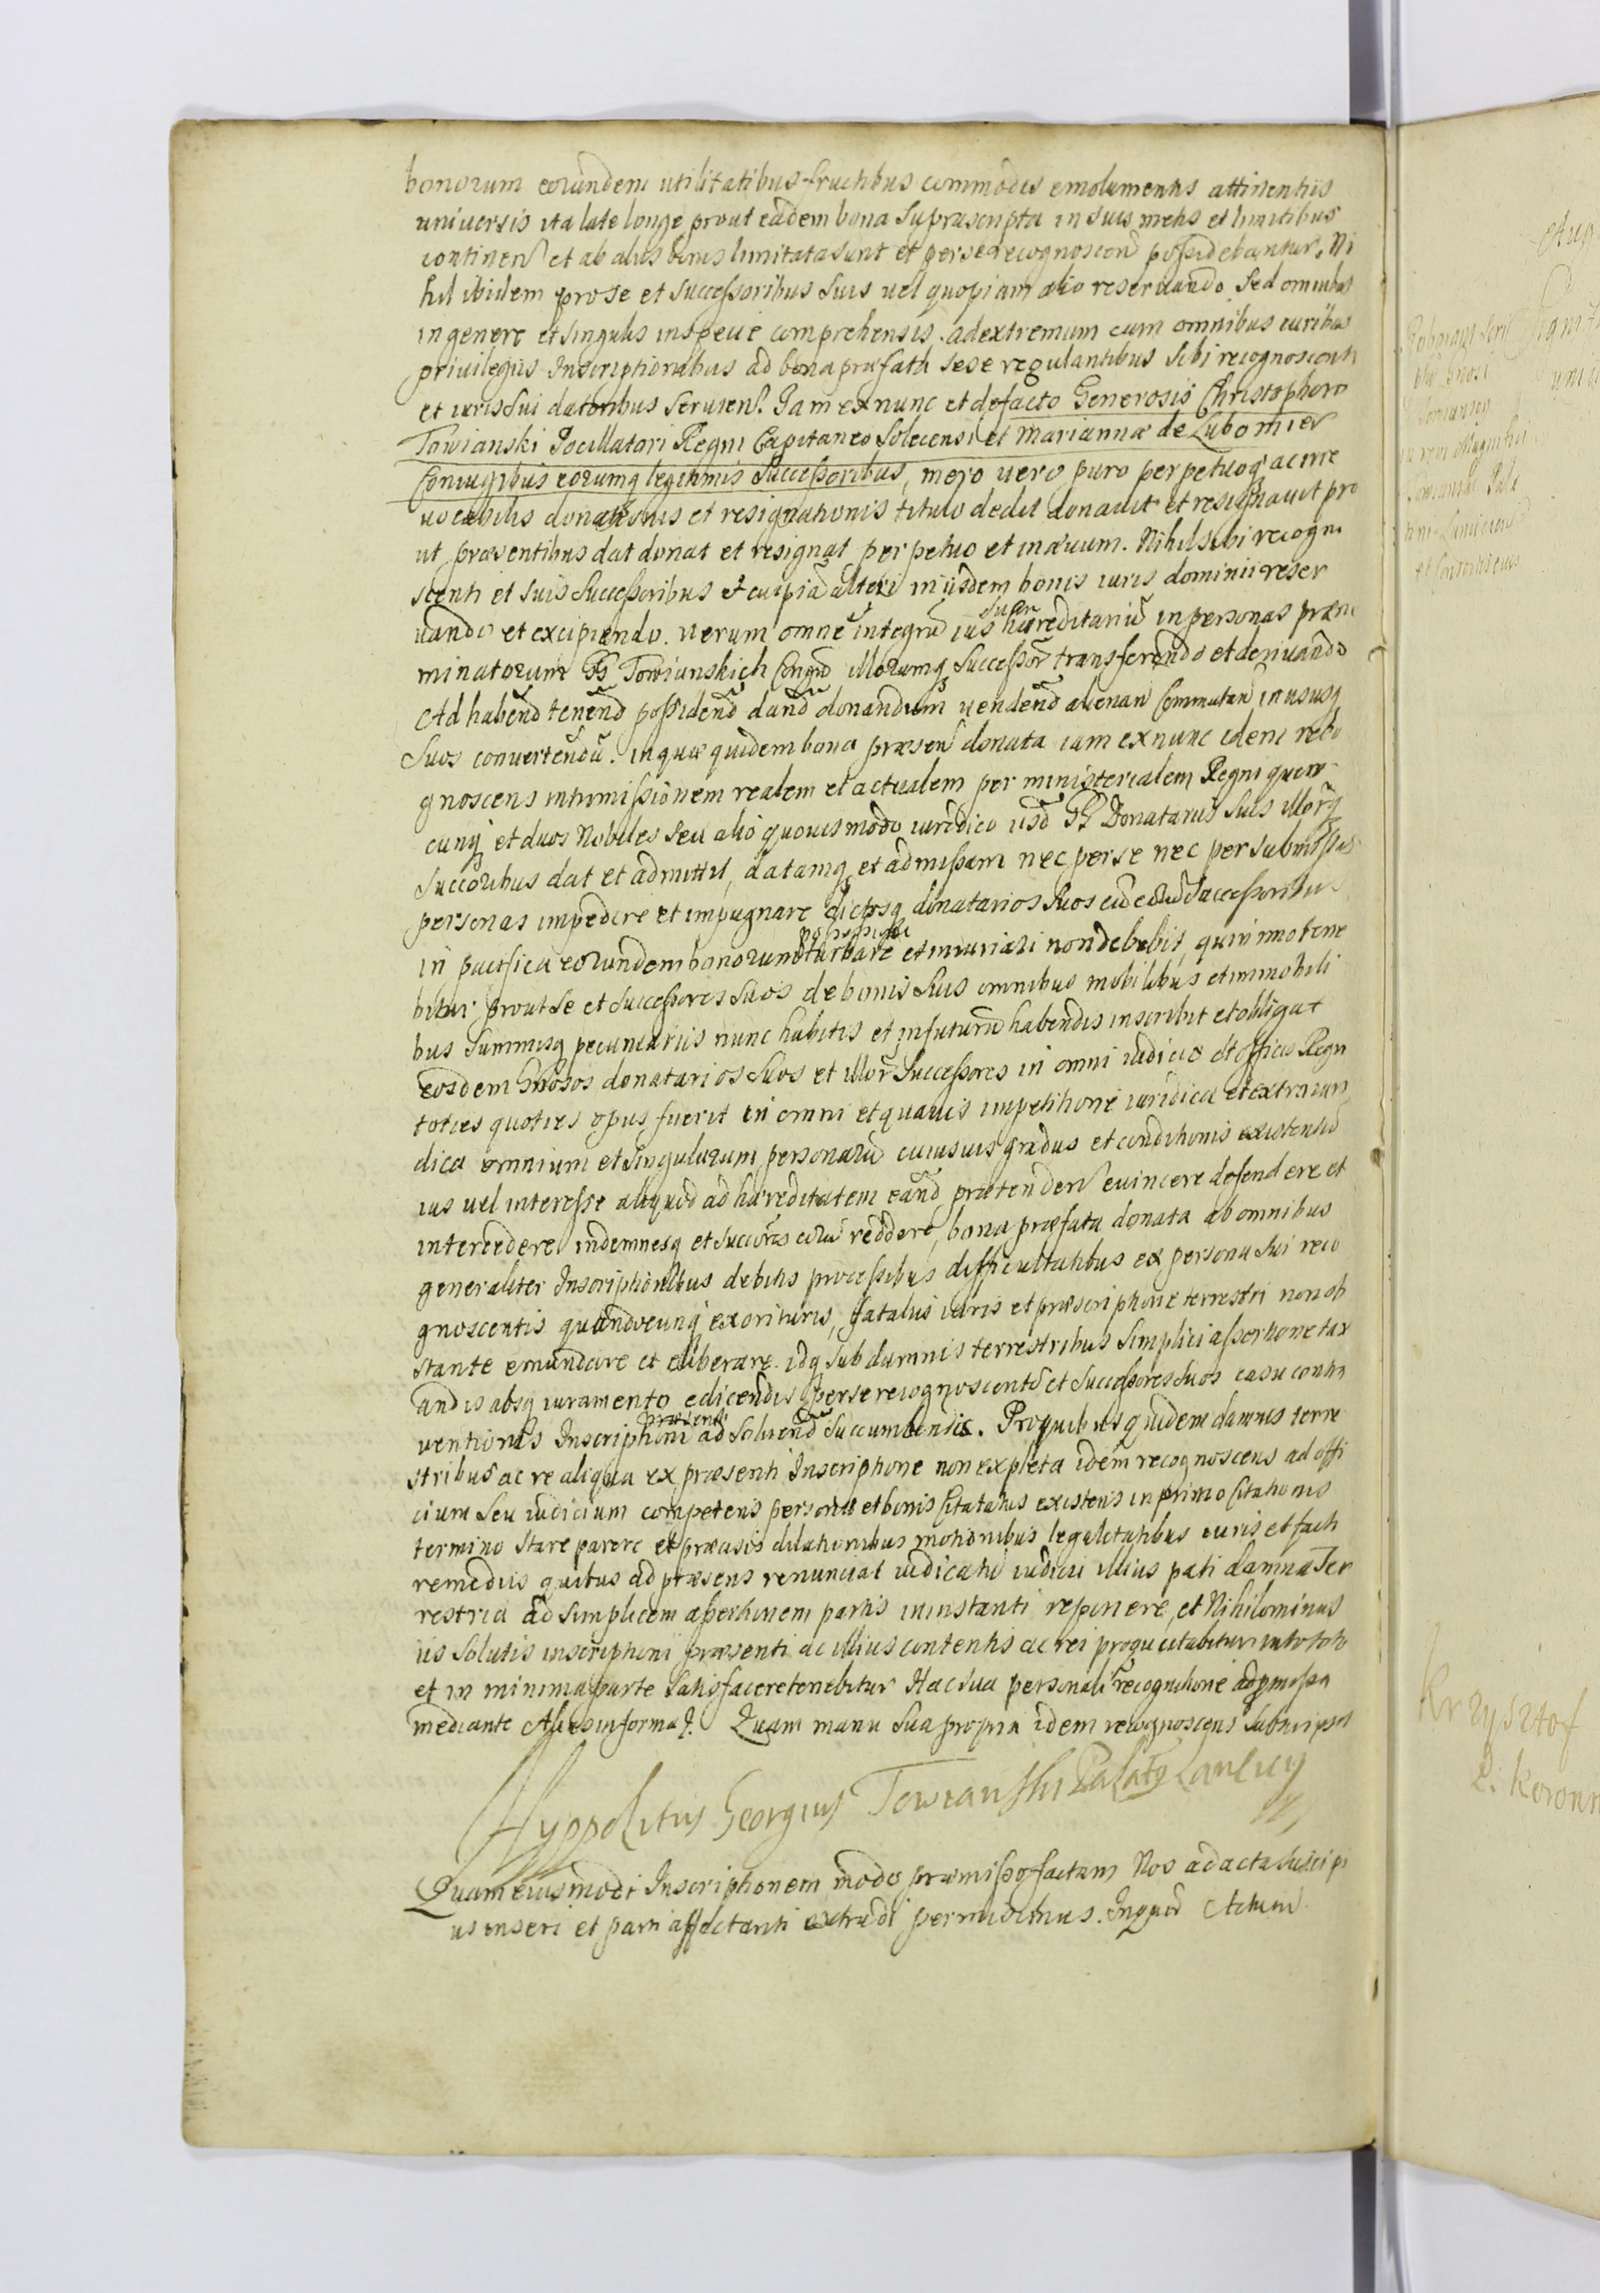 bonorum eorundem utilitatibus fructibus commodis emolumentis attinentiis
universis ita late longe prout eadem bona suprascripta in suis metis et limitibus
continen et ab aliis bonis limitata sunt et per se recognoscen possidebantur. Ni
hil ibidem pro se et successoribus suis vel quopiam alio reservando. Sed omnibus
in genere et singulis in specie comprehensis. ad extremum cum omnibus iuribus
privilegiis Inscriptionibus ad bona præfata sese regulantibus sibi recognoscenti
et iuris sui datoribus servien. Iam ex nunc et de facto Generosis Christophoro
Towianski Pocillatori Regni Capitaneo Solecensi et Mariannæ de Lubomier
Coniugibus eorumq legitimis Successoribus, mero vero puro perpetuoq ac irre
vocabilis donationis et resignationis titulo dedit donavit et resignavit pro
ut præsentibus dat donat et resignat perpetuo et in ævum. Nihil sibi recogno
scenti et suis Successoribus et cuipiã alteri in iisdem bonis iuris dominii reser
vando et excipiendo. verum omne integrũ ius suũ hæreditariũ in personas præno
minatorum GG Towianskich Coniugũ illorumq Successorũ transferendo et derivando
Ad habend tenend possidend dand donandum vendend alienan Commutan in ususq
suos convertendũ. in quæ quidem bona præsen donata iam ex nunc idem reco
gnoscens intromissionem realem et actualem per ministerialem Regni quem
cunq et duos Nobiles seu alio quovis modo iuridico iisd GG Donatariis suis illorq
succoribus dat et admittit, datamq et admissam nec per se nec per submissas
personas impedire et impugnare dictosq donatarios suos eũd eorũd successoribus
in pacifica eorundem bonorum possessione turbare et iniuriari non debebit, quin imo tene
bitur prout se et successores suos de bonis suis omnibus mobilibus et immobili
bus summisq pecuniariis nunc habitis et in futurũ habendis inscribit et obligat
eosdem Gnosos donatarios suos et illor Successores in omni iudicio et officio Regni
toties quoties opus fuerit in omni et quavis impetitione iuridica et extraiuri
dica omnium et singularum personarũ cuiusvis gradus et conditionis existentiũ
ius vel interesse aliquod ad hæreditatem eand prætenden evincere defendere et
intercedere indemnesq et succores eorũ reddere, bona præfata donata ab omnibus
generaliter Inscriptionibus debitis processibus difficultatibus ex persona sui reco
gnoscentis quandocunq exorituris, fataliis iuris et præscriptione terrestri non ob
stante emundare et eliberare idq sub damnis terrestribus simplici assertione tax
andis absq iuramento edicendis per se recognoscentẽ et successores suos casu contra
ventionis Inscriptioni præsenti ad solvend succumbendis. Pro quibus quidem damnis terre
stribus ac re aliqua ex præsenti Inscriptione non expleta idem recognoscens ad offi
cium seu iudicium competens personæ et bonis citatatus existens in primo citationis
termino stare parere et præcisis dilationibus motionibus legalitatibus iuris et facti
remediis quibus ad præsens renunciat iudicatũ iudicii illius pati damna Ter
restria ad simplicem assertionem partis in instanti reponere, et Nihilominus
iis solutis inscriptioni præsenti ac illius contentis ac rei pro qua citabitur in toto
et in minima parte satisfacere tenebitur Hac sua personali recognitione ad præmissa
mediante Alias in forma. Quam manu sua propria idem recognoscens subscripsit
Hyppolitus Georgius Towianski Palatq Lanlicij
Quam eiusmodi Inscriptionem modo præmisso factam Nos ad acta suscipi
us inseri et parti affectanti extradi permisimus. In quorũ Actum
Krzysztof